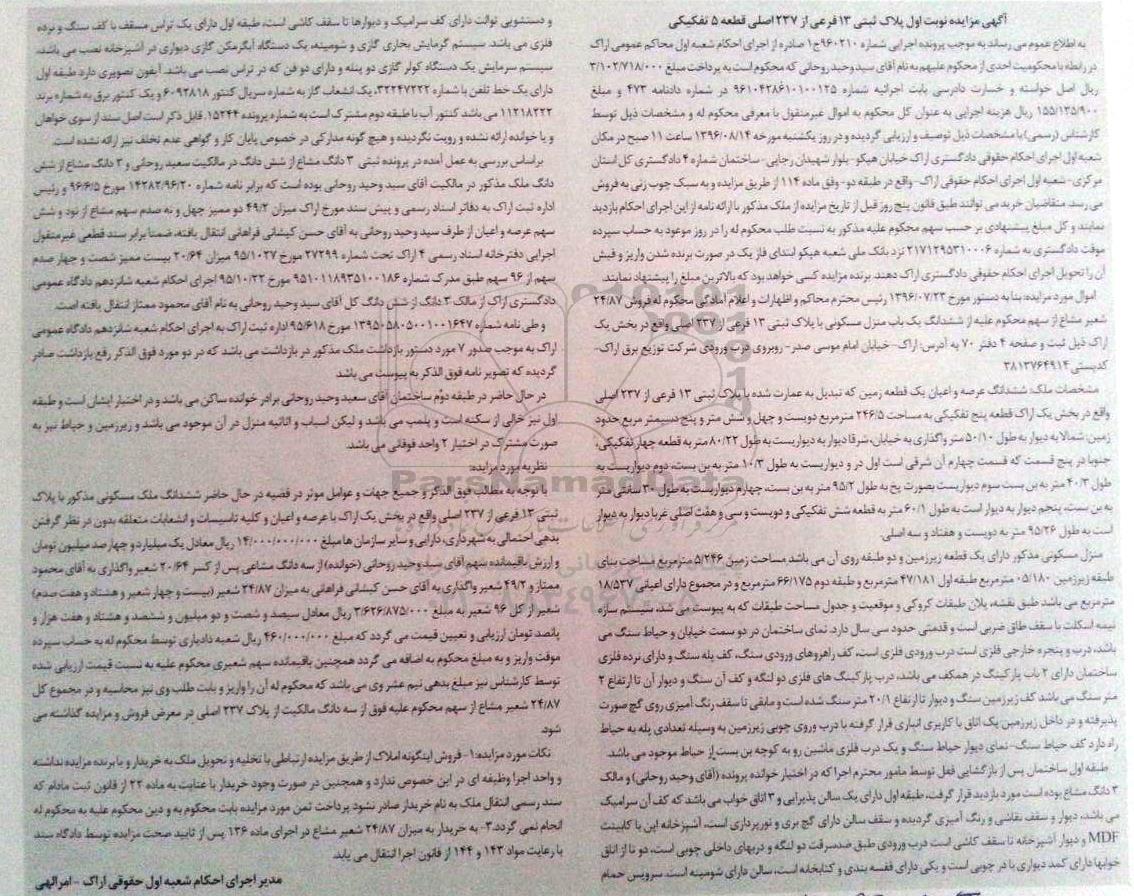 آگهی مزایده نوبت اول پلاک ثبتی ۱۳ فرعی از ۲۳۷ اصلی قطعه ۵ تفکیکی
به اطلاع عموم می رساند به موجب پرونده اجرایی شماره ۹۶۰۲۱۰ج۱ صادره از اجرای احکام شعبه اول محاکم عمومی اراک
در رابطه با محکومیت احدی از محکوم علیهم به نام آقای سید وحید روحانی که محکوم است به پرداخت مبلغ ۳/۱۰۲/۷۱۸/۰۰۰
ریال اصل خواسته و خسارت دادرسی بابت اجرائیه شماره ۹۶۱۰۴۲۸۶۱۰۱۰۰۱۲۵ در شماره دادنامه ۴۷۳ و مبلغ
۱۵۵/۱۳۵/۹۰۰ ریال هزینه اجرایی به عنوان کل محکوم به اموال غیرمنقول با معرفی محکوم له و مشخصات ذیل توسط
کارشناس (رسمی) با مشخصات ذیل توصیف و ارزیابی گردیده و در روز یکشنبه مورخه ۱۳۹۶/۰۸/۱۴ ساعت ۱۱ صبح در مکان
شعبه اول اجرای احکام حقوقی دادگستری اراک خیابان هپکو- بلوار شهیدان رجایی- ساختمان شماره ۴ دادگستری کل استان
مرکزی- شعبه اول اجرای احکام حقوقی اراک- واقع در طبقه دو- وفق ماده ۱۱۴ از طریق مزایده و به سبک چوب زنی به فروش
می رسد. متقاضیان خرید می توانند طبق قانون پنج روز قبل از تاریخ مزایده از ملک مذکور با ارائه نامه از این اجرای احکام بازدید
نمایند و کل مبلغ پیشنهادی بر حسب سهم محکوم علیه مذکور به نسبت طلب محکوم له را در روز موعود به حساب سپرده
موقت دادگستری به شماره ۲۱۷۱۲۹۵۳۱۰۰۰۶ نزد بانک ملی شعبه هپکو ابتدای فاز یک در صورت برنده شدن واریز و فیش
آن را تحویل اجرای احکام حقوقی دادگستری اراک دهند. برنده مزایده کسی خواهد بود که بالاترین مبلغ را پیشنهاد نمایند.
اموال مورد مزایده: بنا به دستور مورخ ۱۳۹۶/۰۷/۲۳ رئیس محترم محاکم و اظهارات و اعلام آمادگی محکوم له فروش ۲۴/۸۷
شعیر مشاع از سهم محکوم علیه از ششدانگ یک باب منزل مسکونی با پلاک ثبتی ۱۳ فرعی از ۲۳۷ اصلی واقع در بخش یک
اراک ذیل ثبت و صفحه ۴ دفتر ۷۰ به آدرس: اراک- خیابان امام موسی صدر- روبروی درب ورودی شرکت توزیع برق اراک-
کدپستی ۳۸۱۳۷۶۴۹۱۴
مشخصات ملک: ششدانگ عرصه و اعیان یک قطعه زمین که تبدیل به عمارت شده با پلاک ثبتی ۱۳ فرعی از ۲۳۷ اصلی
واقع در بخش یک اراک قطعه پنج تفکیکی به مساحت ۲۴۶/۵ مترمربع دویست و چهل و شش متر و پنج دسیمتر مربع حدود
زمین: شمالا به دیوار به طول ۵۰/۱۰ متر واگذاری به خیابان، شرقا دیوار به دیواریست به طول ۸۰/۲۲ متر به قطعه چهار تفکیکی،
جنوبا در پنج قسمت که قسمت چهارم آن شرقی است اول در و دیواریست به طول ۱۰/۳ متر به بن بست، دوم دیواریست به
طول ۴۰/۳ متر به بن بست سوم دیواریست بصورت پخ به طول ۹۵/۲ متر به بن بست، چهارم دیواریست به طول ۳۰ سانتی متر
به بن بست، پنجم دیوار به دیوار است به طول ۶۰/۱ متر به قطعه شش تفکیکی و دویست و سی و هفت اصلی غربا دیوار به دیوار
است به طول ۹۵/۲۶ متر به دویست و هفتاد و سه اصلی.
منزل مسکونی مذکور دارای یک قطعه زیرزمین و دو طبقه روی آن می باشد مساحت زمین ۵/۲۴۶ مترمربع مساحت بنای
طبقه زیرزمین ۰۵/۱۸۰ مترمربع طبقه اول ۴۷/۱۸۱ مترمربع و طبقه دوم ۶۶/۱۷۵ مترمربع و در مجموع دارای اعیانی ۱۸/۵۳۷
مترمربع می باشد طبق نقشه، پلان طبقات کروکی و موقعیت و جدول مساحت طبقات که به پیوست می شد، سیستم سازه
نیمه اسکلت با سقف طاق ضربی است و قدمتی حدود سی سال دارد. نمای ساختمان در دو سمت خیابان و حیاط سنگ می
باشد، درب و پنجره خارجی فلزی است درب ورودی فلزی است، کف راهروهای ورودی سنگ، کف پله سنگ و دارای نرده فلزی
ساختمان دارای ۲ باب پارکینگ در همکف می باشد، درب پارکینگ های فلزی دو لنگه و کف آن سنگ و دیوار آن تا ارتفاع ۲
متر سنگ می باشد کف زیرزمین سنگ و دیوار تا ارتفاع ۲۰/۱ متر سنگ شده است و مابقی تا سقف رنگ آمیزی روی گچ صورت
پذیرفته و در داخل زیرزمین یک اتاق با کاربری انباری قرار گرفته با درب وروی چوبی زیرزمین به وسیله تعدادی پله به حیاط
راه دارد کف حیاط سنگ- نمای دیوار حیاط سنگ و یک درب فلزی ماشین رو به کوچه بن بست از حیاط موجود می باشد.
طبقه اول ساختمان پس از بازگشایی قفل توسط مامور محترم اجرا که در اختیار خوانده پرونده (آقای وحید روحانی) و مالک
۳ دانگ مشاع بوده است مورد بازدید قرار گرفت، طبقه اول دارای یک سالن پذیرایی و ۳ اتاق خواب می باشد که کف آن سرامیک
می باشد، دیوار و سقف نقاشی و رنگ آمیزی گردیده و سقف سالن دارای گچ بری و نورپردازی است، آشپزخانه اپن با کابینت
MDF و دیوار آشپزخانه تا سقف کاشی است درب ورودی طبق ضدسرقت دو لنگه و دربهای داخلی چوبی است، دو تا از اتاق
خوابها دارای کمد دیواری با در چوبی است و یکی دارای قفسه بندی و کتابخانه است، سالن دارای شومینه است. سرویس حمام
و دستشویی توالت دارای کف سرامیک و دیوارها تا سقف کاشی است، طبقه اول دارای یک تراس مسقف با کف سنگ و نرده
فلزی می باشد. سیستم گرمایش بخاری گازی و شومینه، یک دستگاه آبگرمکن گازی دیواری در آشپزخانه نصب می باشد.
سیستم سرمایش یک دستگاه کولر گازی دو پنله و دارای دو فن که در تراس نصب می باشد. آیفون تصویری دارد طبقه اول
دارای یک خط تلفن با شماره ۳۲۲۴۷۲۲۲، یک انشعاب گاز به شماره سریال کنتور ۶۰۹۲۸۱۸ و یک کنتور برق به شماره برند
۱۱۲۱۸۳۲۲ می باشد کنتور آب با طبقه دوم مشترک است به شماره پرونده ۱۵۲۴۴. قابل ذکر است اصل سند از سوی خواهان
و یا خوانده ارائه نشده و رویت نگردیده و هیچ گونه مدارکی در خصوص پایان کار و گواهی عدم تخلف نیز ارائه نشده است.
براساس بررسی به عمل آمده در پرونده ثبتی ۳ دانگ مشاع از شش دانگ در مالکیت سعید روحانی و ۳ دانگ مشاع از شش
دانگ ملک مذکور در مالکیت آقای سید وحید روحانی بوده است که برابر نامه شماره ۱۴۲۸۲/۹۶/۲۰ مورخ ۹۶/۶/۵ و رئیس
اداره ثبت اراک به دفاتر اسناد رسمی و پیش سند مورخ اراک میزان ۴۹/۲ دو ممیز چهل و نه صدم سهم مشاع از نود و شش
سهم عرصه و اعیان از طرف سید وحید روحانی به آقای حسن کیشانی فراهانی انتقال یافته، ضمنا برابر سند قطعی غیرمنقول
اجرایی دفترخانه اسناد رسمی ۴ اراک تحت شماره ۲۷۲۹۹ مورخ ۹۵/۱۰۲۷ میزان ۲۰/۶۴ بیست ممیز شصت و چهار صدم
سهم از ۹۶ سهم طبق مدرک شماره ۹۵۱۰۱۱۸۹۳۵۱۰۰۱۸۶ مورخ ۹۵/۱۰/۲۲ اجرای احکام شعبه شانزدهم دادگاه عمومی
دادگستری اراک از مالک ۳ دانگ از شش دانگ کل آقای سید وحید روحانی به نام آقای محمود ممتاز انتقال یافته است.
و طی نامه شماره ۱۳۹۵۰۵۸۰۵۰۰۱۰۰۱۶۴۷ مورخ ۹۵/۶۱۸ اداره ثبت اراک به اجرای احکام شعبه شانزدهم دادگاه عمومی
اراک به موجب صدور ۷ مورد دستور بازداشت ملک مذکور در بازداشت می باشد که در دو مورد فوق الذکر رفع بازداشت صادر
گردیده که تصویر نامه فوق الذکر به پیوست می باشد
در حال حاضر در طبقه دوم ساختمان آقای سعید وحید روحانی برادر خوانده ساکن می باشد و در اختیار ایشان است و طبقه
اول نیز خالی از سکنه است و پلمپ می باشد و لیکن اسباب و اثاثیه منزل در آن موجود می باشد و زیرزمین و حیاط نیز به
صورت مشترک در اختیار ۲ واحد فوقانی می باشد.
نظریه مورد مزایده:
با توجه به مطالب فوق الذکر و جمیع جهات و عوامل موثر در قضیه در حال حاضر ششدانگ ملک مسکونی مذکور با پلاک
ثبتی ۱۳ فرعی از ۲۳۷ اصلی واقع در بخش یک اراک با عرصه و اعیان و کلیه تاسیسات و انشعابات متعلقه بدون در نظر گرفتن
بدهی احتمالی به شهرداری، دارایی و سایر سازمان ها مبلغ ۱۴/۰۰۰/۰۰۰/۰۰۰ ریال معادل یک میلیارد و چهارصد میلیون تومان
و ارزش باقیمانده سهم آقای سید وحید روحانی (خوانده) از سه دانگ مشاعی پس از کسر ۲۰/۶۴ شعیر واگذاری به آقای محمود
ممتاز و ۴۹/۲ شعیر واگذاری به آقای حسن کیشانی فراهانی به میزان ۲۴/۸۷ شعیر (بیست و چهار شعیر و هشتاد و هفت صدم)
شعیر از کل ۹۶ شعیر به مبلغ ۳/۶۲۶/۸۷۵/۰۰۰ ریال معادل سیصد و شصت و دو میلیون و ششصد و هشتاد و هفت هزار و
پانصد تومان ارزیابی و تعیین قیمت می گردد که مبلغ ۴۶۰/۰۰۰/۰۰۰ ریال شعبه دادیاری توسط محکوم له به حساب سپرده
موقت واریز و به مبلغ محکوم به اضافه می گردد همچنین باقیمانده سهم شعیری محکوم علیه به نسبت قیمت ارزیابی شده
توسط کارشناس نیز مبلغ بدهی نیم عشر وی می باشد که محکوم له آن را واریز و بابت طلب وی نیز محاسبه و در مجموع کل
۲۴/۸۷ شعیر مشاع از سهم محکوم علیه فوق از سه دانگ مالکیت از پلاک ۲۳۷ اصلی در معرض فروش و مزایده گذاشته می
شود.
نکات مورد مزایده: ۱- فروش اینگونه املاک از طریق مزایده ارتباطی با تخلیه و تحویل ملک به خریدار و یا برنده مزایده نداشته
و واحد اجرا وظیفه ای در این خصوص ندارد و همچنین در صورت وجود خریدار با عنایت به ماده ۲۲ از قانون ثبت مادام که
سند رسمی انتقال ملک به نام خریدار صادر نشود پرداخت ثمن مورد مزایده بابت محکوم به و دین محکوم علیه به محکوم له
انجام نمی گردد. ۳- به خریدار به میزان ۲۴/۸۷ شعیر مشاع در اجرای ماده ۱۳۶ پس از تایید صحت مزایده توسط دادگاه سند
با رعایت مواد ۱۴۳ و ۱۴۴ از قانون اجرا انتقال می یابد.
مدیر اجرای احکام شعبه اول حقوقی اراک - امرالهی
ParsNamadData